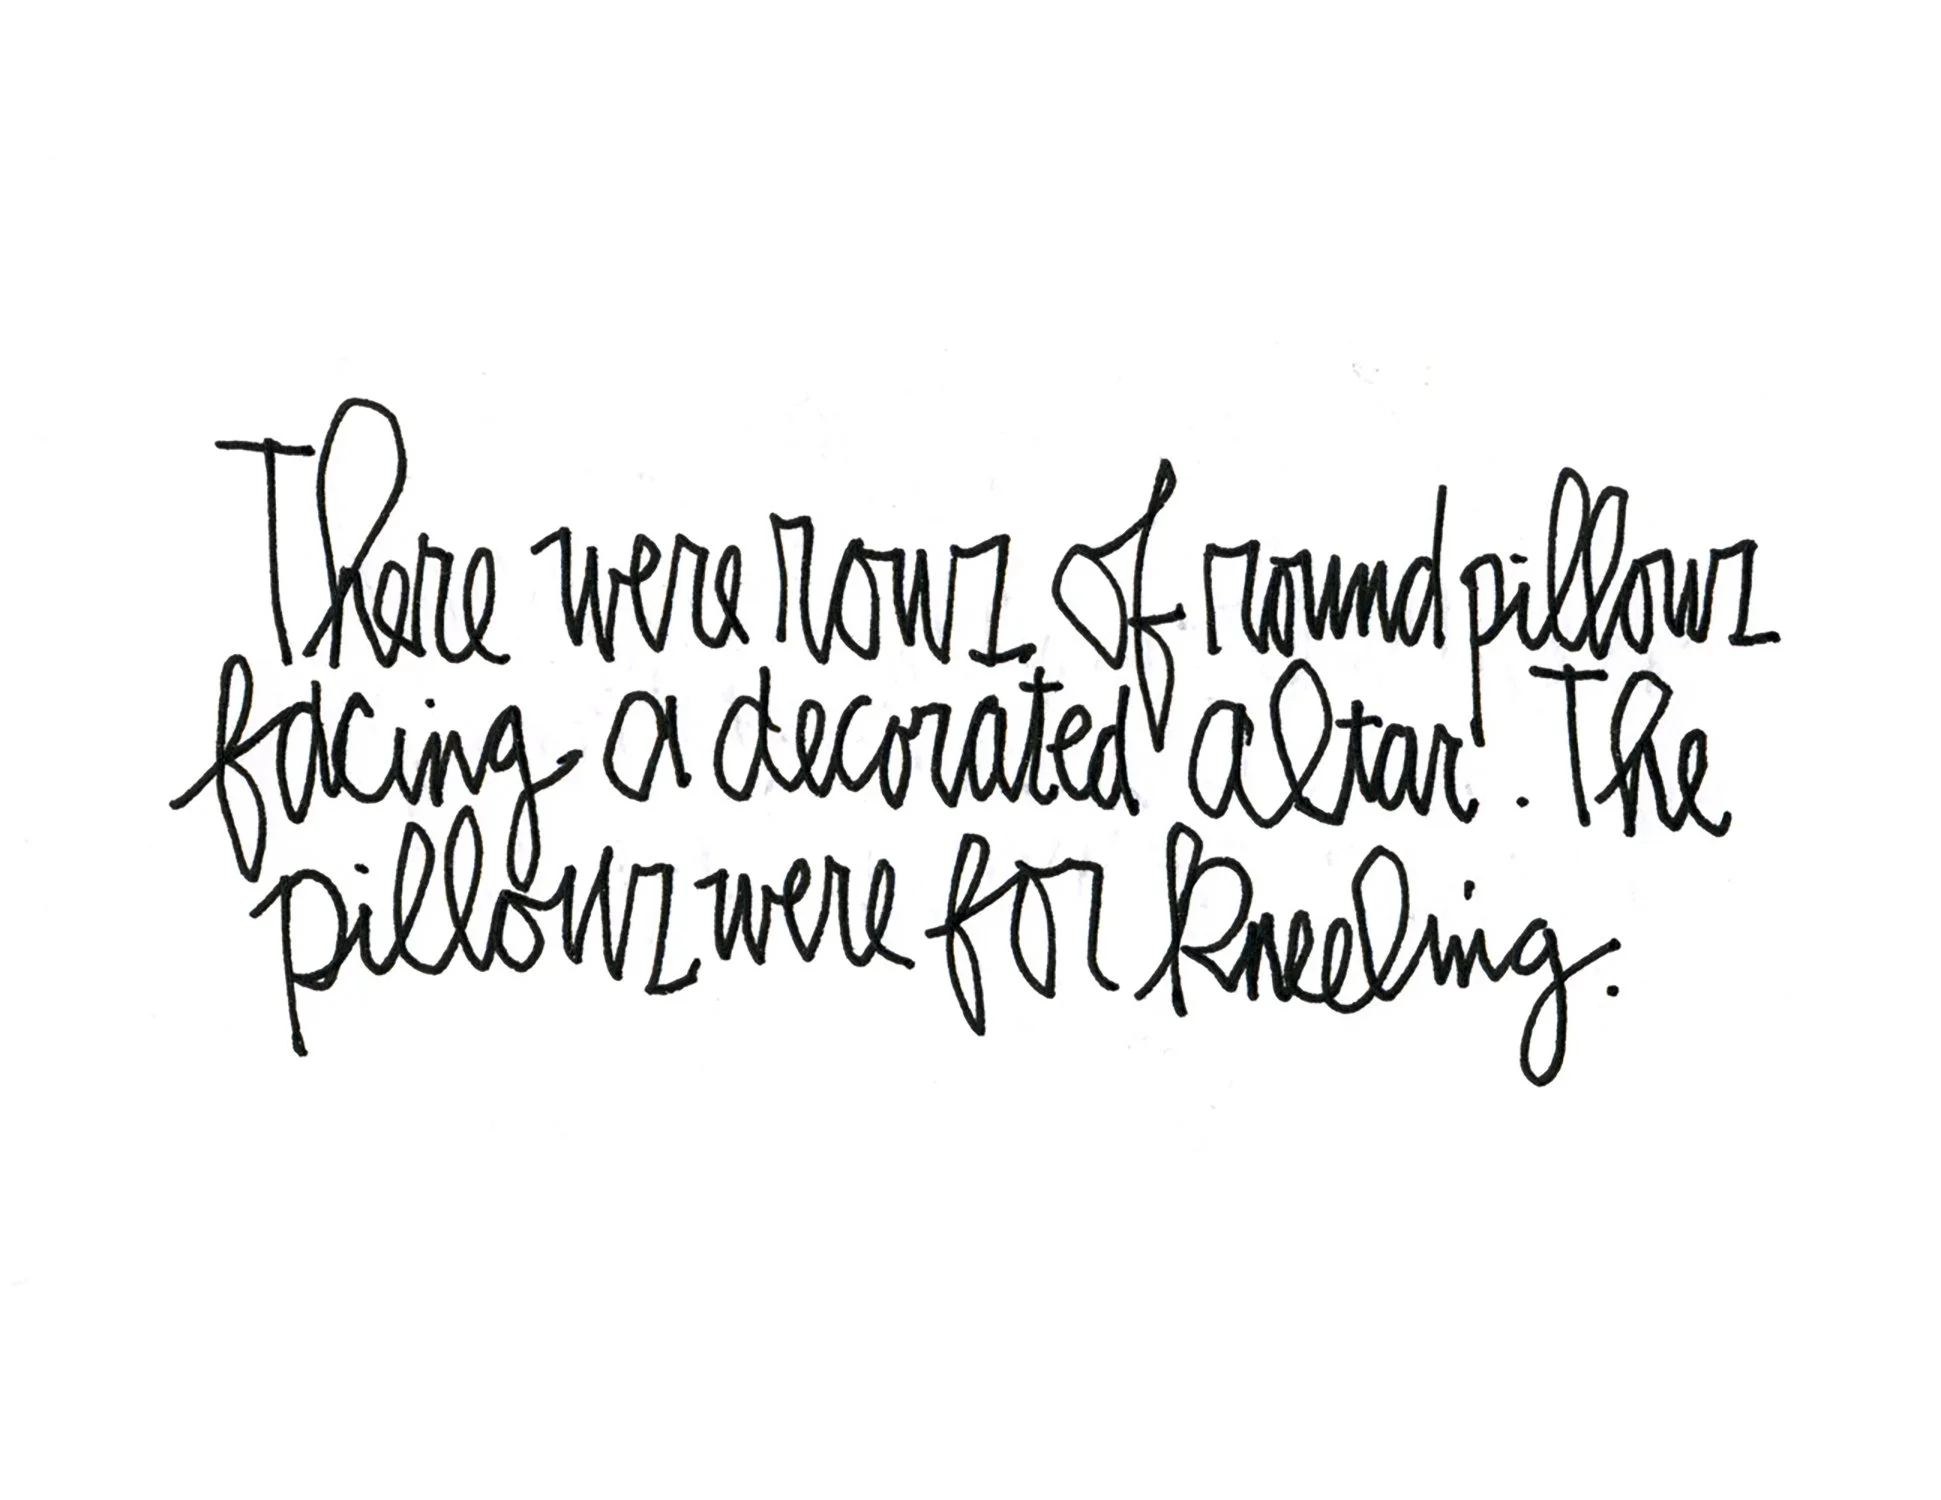 There were rows of round pillows
facing a decorated altar. The
pillows were for kneeling.